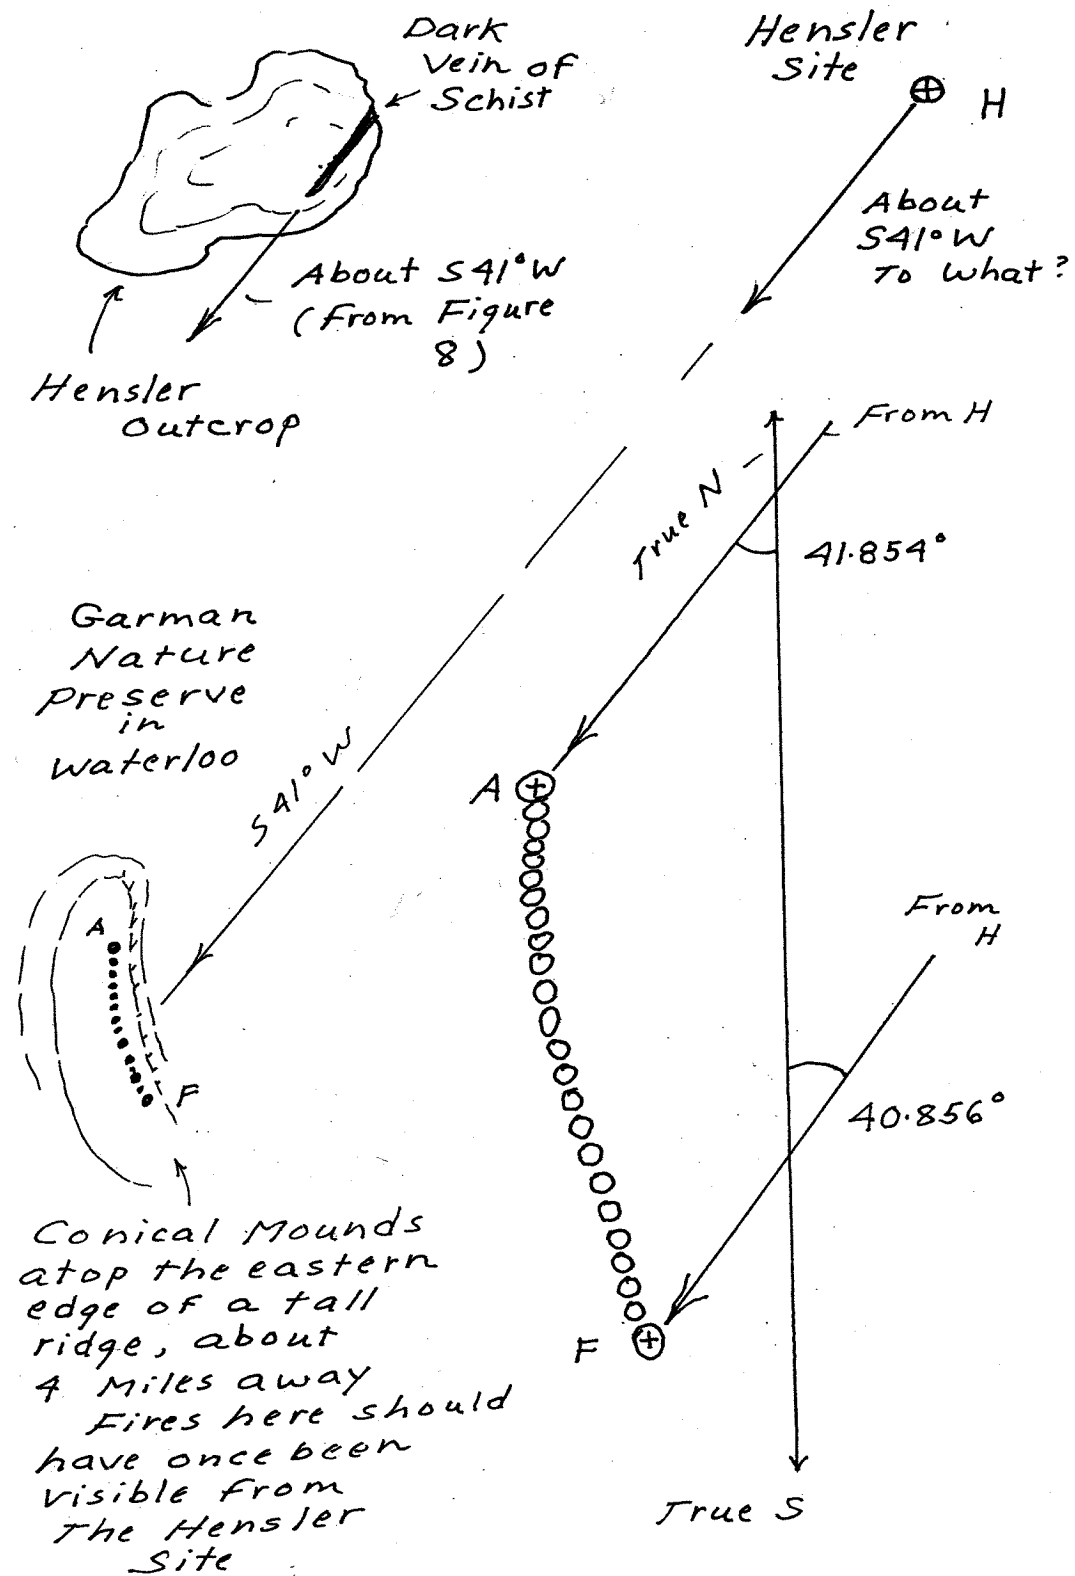 Dark
Vein of
Schist
Hensler
Site
H
About
S41°W
To What?
About S41°W
(From Figure
8)
Hensler
Outcrop
From H
True N
41.854°
Garman
Nature
Preserve
in
Waterloo
S41°W
A
F
A
From
H
40.856°
F
Conical Mounds
atop the eastern
edge of a tall
ridge, about
4 Miles away
Fires here should
have once been
visible from
The Hensler
Site
True S